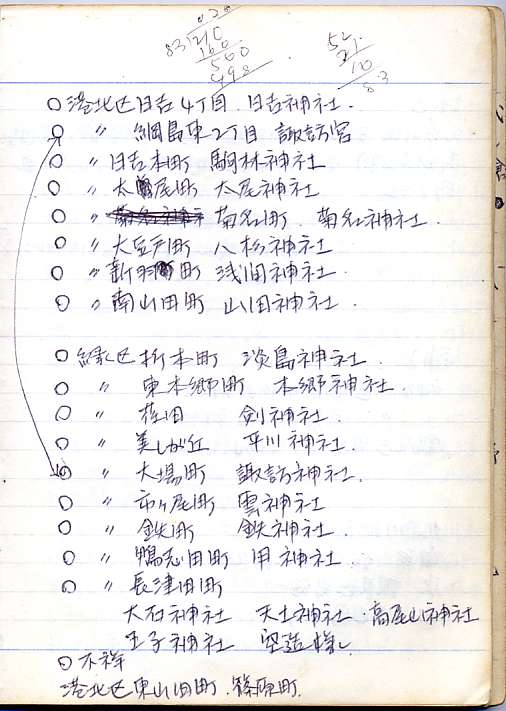 0.26
83)215
166
500
498
52
31
10
83
○港北区日吉4丁目 日吉神社.
○ 〃 綱島東2丁目 諏訪宮
○ 〃日吉本町 駒林神社
○ 〃大尾町 大尾神社
○ 〃 菊名町 菊名神社.
○ 〃大豆戸町 八杉神社
○ 〃新羽町 浅間神社.
○ 〃南山田町 山田神社.
○緑区折本町 淡島神社.
○ 〃 東本郷町 本郷神社.
○ 〃 荏田 剣神社.
○ 〃 美しが丘 平川神社.
○ 〃 大場町 諏訪神社.
○ 〃 市ヶ尾町 雲神社.
○ 〃 鉄町 鉄神社.
○ 〃 鴨志田町 甲神社.
○ 〃 長津田町
大石神社 天土神社 高尾山神社
王子神社
○不祥
港北区東山田町.篠原町.